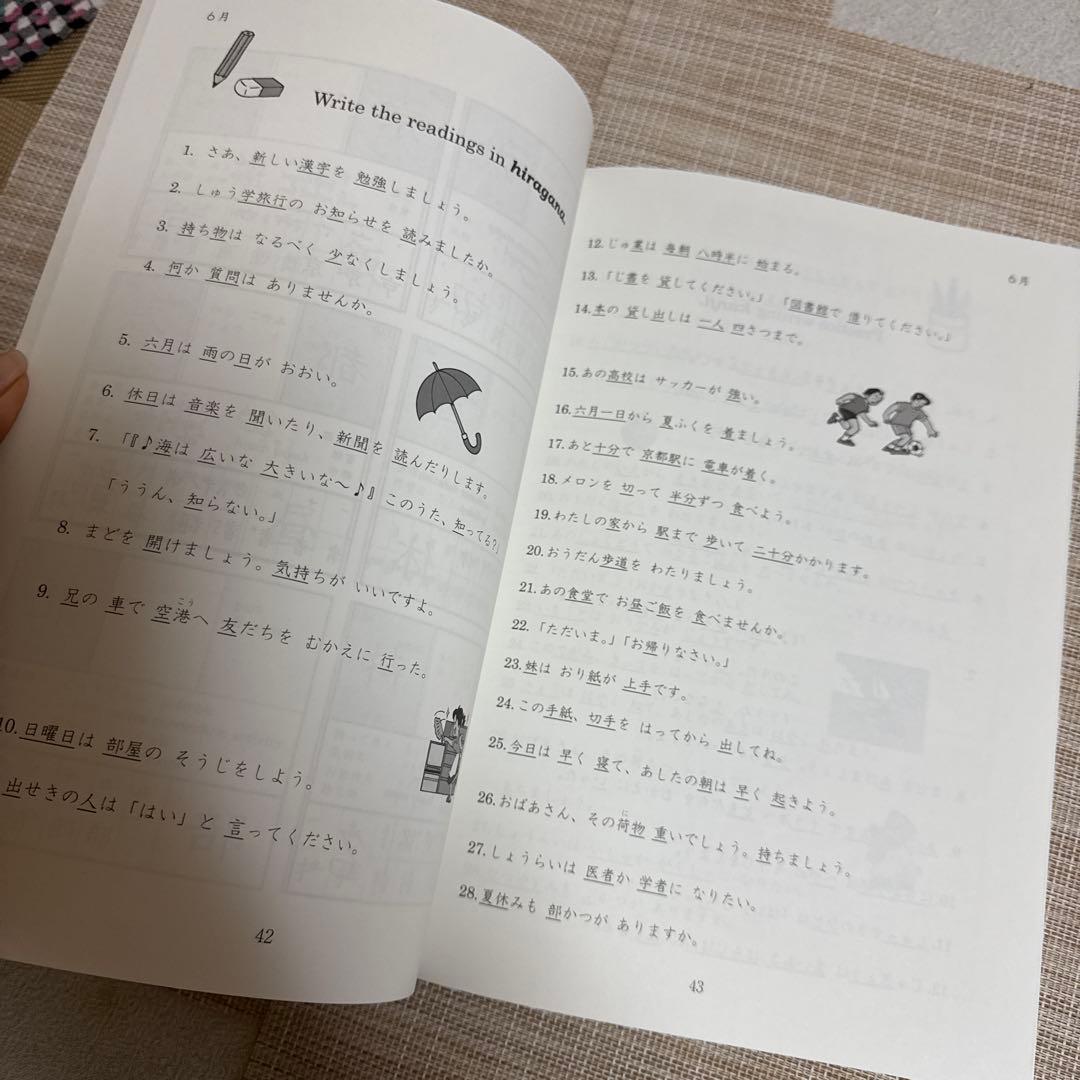 6月
Write the readings in hiragana.
1. さあ、新しい漢字を 勉強しましょう。
2. しゅう学旅行の お知らせを 読みましたか。
3. 持ち物は なるべく 少なくしましょう。
4. 何か 質問は ありませんか。
5. 六月は 雨の日が おおい。
6. 休日は 音楽を 聞いたり、新聞を 読んだりします。
7. 「『♪海は 広いな 大きいな〜♪』このうた、知ってる?」
「ううん、知らない。」
8. まどを 開けましょう。気持ちが いいですよ。
9. 兄の 車で 空港へ 友だちを むかえに 行った。
こう
10. 日曜日は 部屋の そうじをしよう。
出せきの人は「はい」と 言ってください。
42
6月
12. じゅ業は 毎朝 八時半に 始まる。
13. 「じ書を 貸してください。」 「図書館で 借りてください。」
14. 本の 貸し出しは 一人 四さつまで。
15. あの高校は サッカーが 強い。
16. 六月一日から 夏ふくを 着ましょう。
17. あと十分で 京都駅に 電車が着く。
18. メロンを 切って 半分ずつ 食べよう。
19. わたしの家から 駅まで 歩いて 二十分かかります。
20. おうだん歩道を わたりましょう。
21. あの食堂で お昼ご飯を 食べませんか。
22. 「ただいま。」「お帰りなさい。」
23. 妹は おり紙が 上手です。
24. この手紙、切手を はってから 出してね。
25. 今日は 早く 寝て、あしたの朝は 早く 起きよう。
26. おばあさん、その荷物 重いでしょう。持ちましょう。
に
27. しょうらいは 医者か 学者に なりたい。
28. 夏休みも 部かつが ありますか。
43